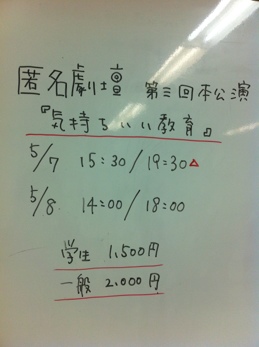 匿名劇壇 第三回本公演
『気持ちいい教育』
5/7 15:30/19:30△
5/8 14:00/18:00
学生 1,500円
一般 2,000円